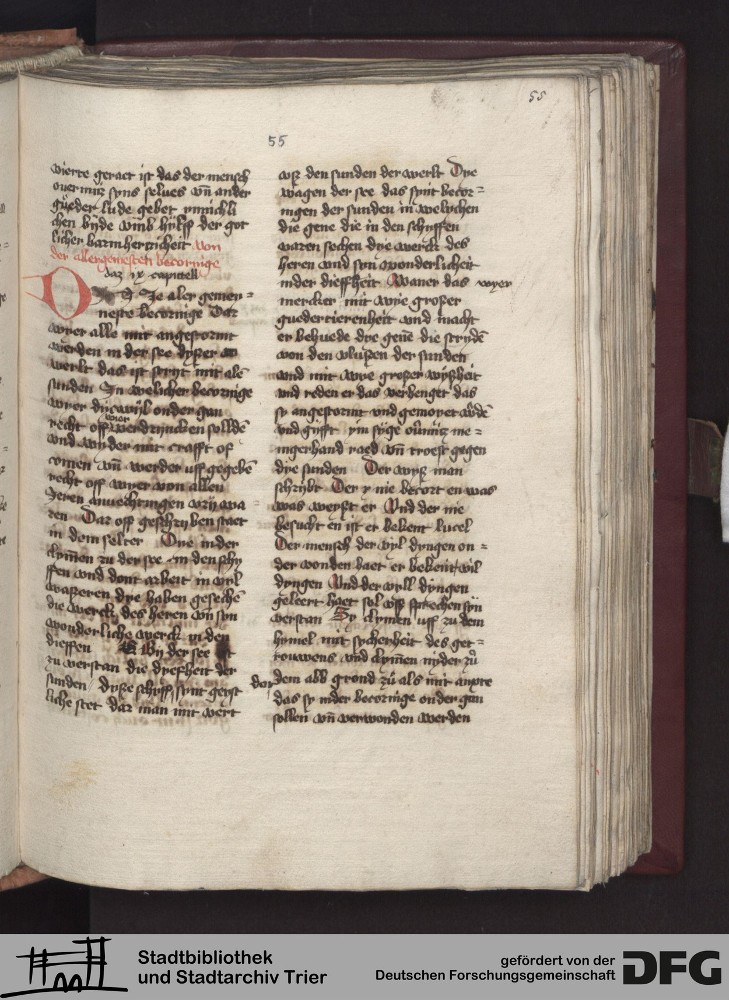 55
55
vierte geraet ist das der mensch
ouermitz syns selues vn̄ ander
guder lude gebet ynnichli
chen byde vmb hylff der got
licher barmherticheit von
der allergemesten becoringe
daz ix capittell
Die aler gemen=
neste becoringe Dar
wyer alle mit angestormt
werden in der see dyßer
werlt das ist stryt mit alē
sunden In welicher becoringe
wyer dycwyl onder gan
recht off wyer verdryncken solldē
vnd wyder mit crafft off
comen vn̄ werder uff gegebē
recht off wyer von allen
Jeren anuechtingen vrij wa
ren Dar off geschryben staet
in dem selter Dye in der
clymen zu der see in den schy
ffen vnd dont arbeit in vyl
waßeren dye haben gesechē
die werck des heren vn̄ syn
wonderliche werck in den
dieffen By der see ist
zu verstan die dyefheit der
sunden dyße schyff synt geyst
liche stet dar man mit vert
vyß den sunden der werlt Dye
wagen der see das synt becor=
ingen der sunden in welychen
die gene die in den schyffen
waren sechen dye werck des
heren vnd syn wonderlicheit
in der dieffheit Waner das wyer
mercken mit wye großer
guedertierenheit vnd macht
er behuede dye gene die strydē
von den vlußen der sunden
vnd mit wye großer wyßheit
vnd reden er das verhenget das
sy angestormt vnd gemoyet wdē
vnd gyfft ym syge ou̅mitz me=
nigerhand raed vn̄ troest gegen
dye sunden Der wyß man
schrybt Der y nie becort en was
was weyst er Vnd der nie
besucht en ist er bekent lucel
Der mensch der vyl dyngen on=
der vonden haet er bekent vil
dyngen Vnd der vyll dyngen
geleert haet sol vyß sprechen syn
verstan Sy clymen uff zu dem
hymel mit sycherheit des get=
rouwens vnd clymen nyder zu̇
dor dem abb grond zu̇ als mit anxte
das sy in der becoringe onder gan
sollen vn̄ verwonden werden
Stadtbibliothek
und Stadtarchiv Trier
gefördert von der
Deutschen Forschungsgemeinschaft
DFG